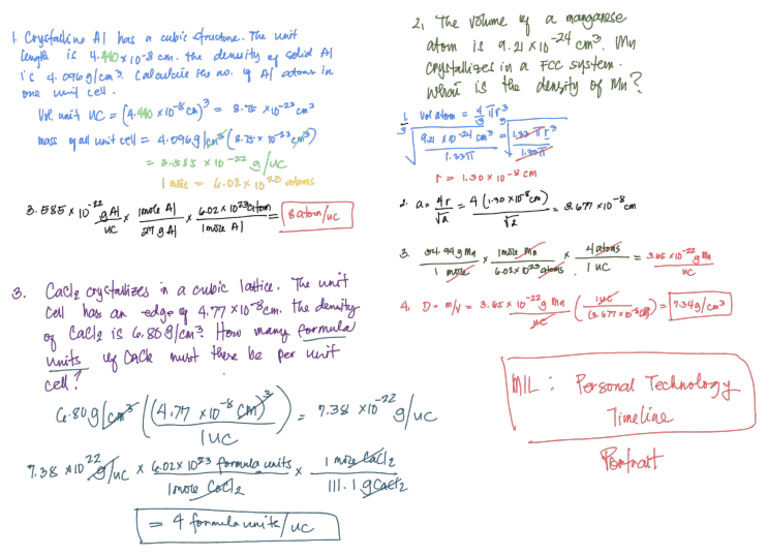 1. Crystalline Al has a cubic structure. The unit
length is 4.440 × 10-8 cm. the density of solid Al
is 4.096 g/cm³. Calculate the no. of Al atoms in
one unit cell.
Vol unit UC = (4.440 × 10-8 cm)³ = 8.75 × 10-23 cm³
mass of all unit cell = 4.096 g/cm³ (8.75 × 10-23 cm³)
= 3.585 × 10-22 g/uc
1 mole = 6.02 × 10²³ atoms
3.585 × 10-22 g Al/uc × 1mole Al/27 g Al × 6.02 × 10²³ atom/1mole Al = 8 atom/uc
2. The volume of a manganese
atom is 9.21 × 10-24 cm³. Mn
crystallizes in a FCC system.
What is the density of Mn?
1. vol atom = 4/3 πr³
³√(9.21 × 10-24 cm³/1.33π) = ³√(1.33 π r³/1.33π)
r = 1.30 × 10-8 cm
2. a = 4r/√2 = 4(1.30 × 10-8 cm)/√2 = 3.677 × 10-8 cm
3. 54.94 g Mn/1 mole × 1mole Mn/6.02 × 10²³ atoms × 4 atoms/1 UC = 3.65 × 10-22 g Mn/uc
4. D = m/v = 3.65 × 10-22 g Mn/uc (1uc/(3.677 × 10-8 cm)³) = 7.34 g/cm³
3. CaCl2 crystallizes in a cubic lattice. The unit
cell has an edge of 4.77 × 10-8 cm. the density
of CaCl2 is 6.80 g/cm³. How many formula
units of CaCl2 must there be per unit
cell?
6.80 g/cm³ ((4.77 × 10-8 cm)³/1UC) = 7.38 × 10-22 g/uc
7.38 × 10-22 g/uc × 6.02 × 10²³ formula units/1mole CaCl2 × 1 mole CaCl2/111.1 g CaCl2
= 4 formula units/uc
MIL: Personal Technology
Timeline
Portrait